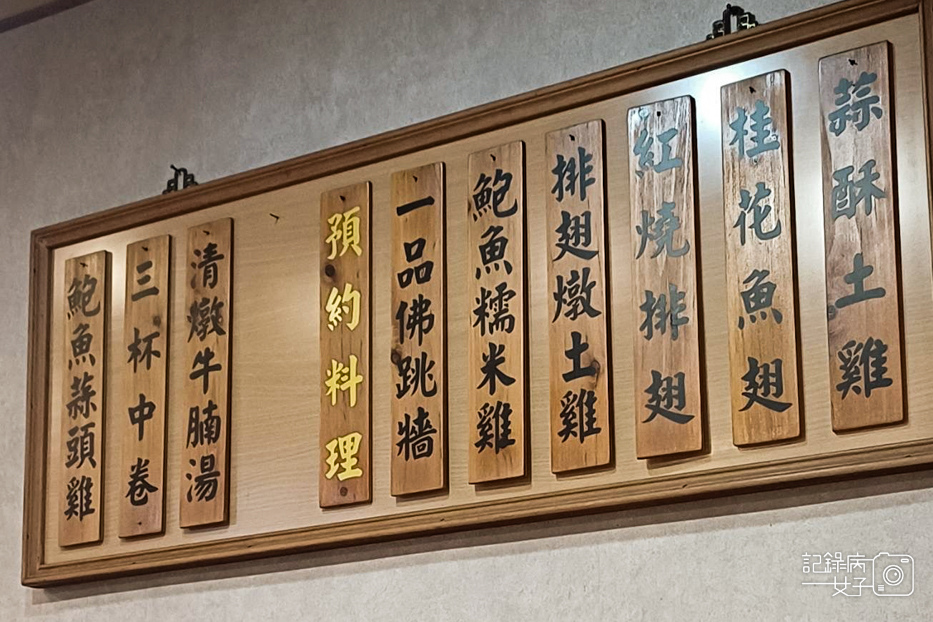 蒜酥土雞
桂花魚翅
紅燒排翅
排翅燉土雞
鮑魚糯米雞
一品佛跳牆
預約料理
清燉牛腩湯
三杯中卷
鮑魚蒜頭雞
記錄病
女子